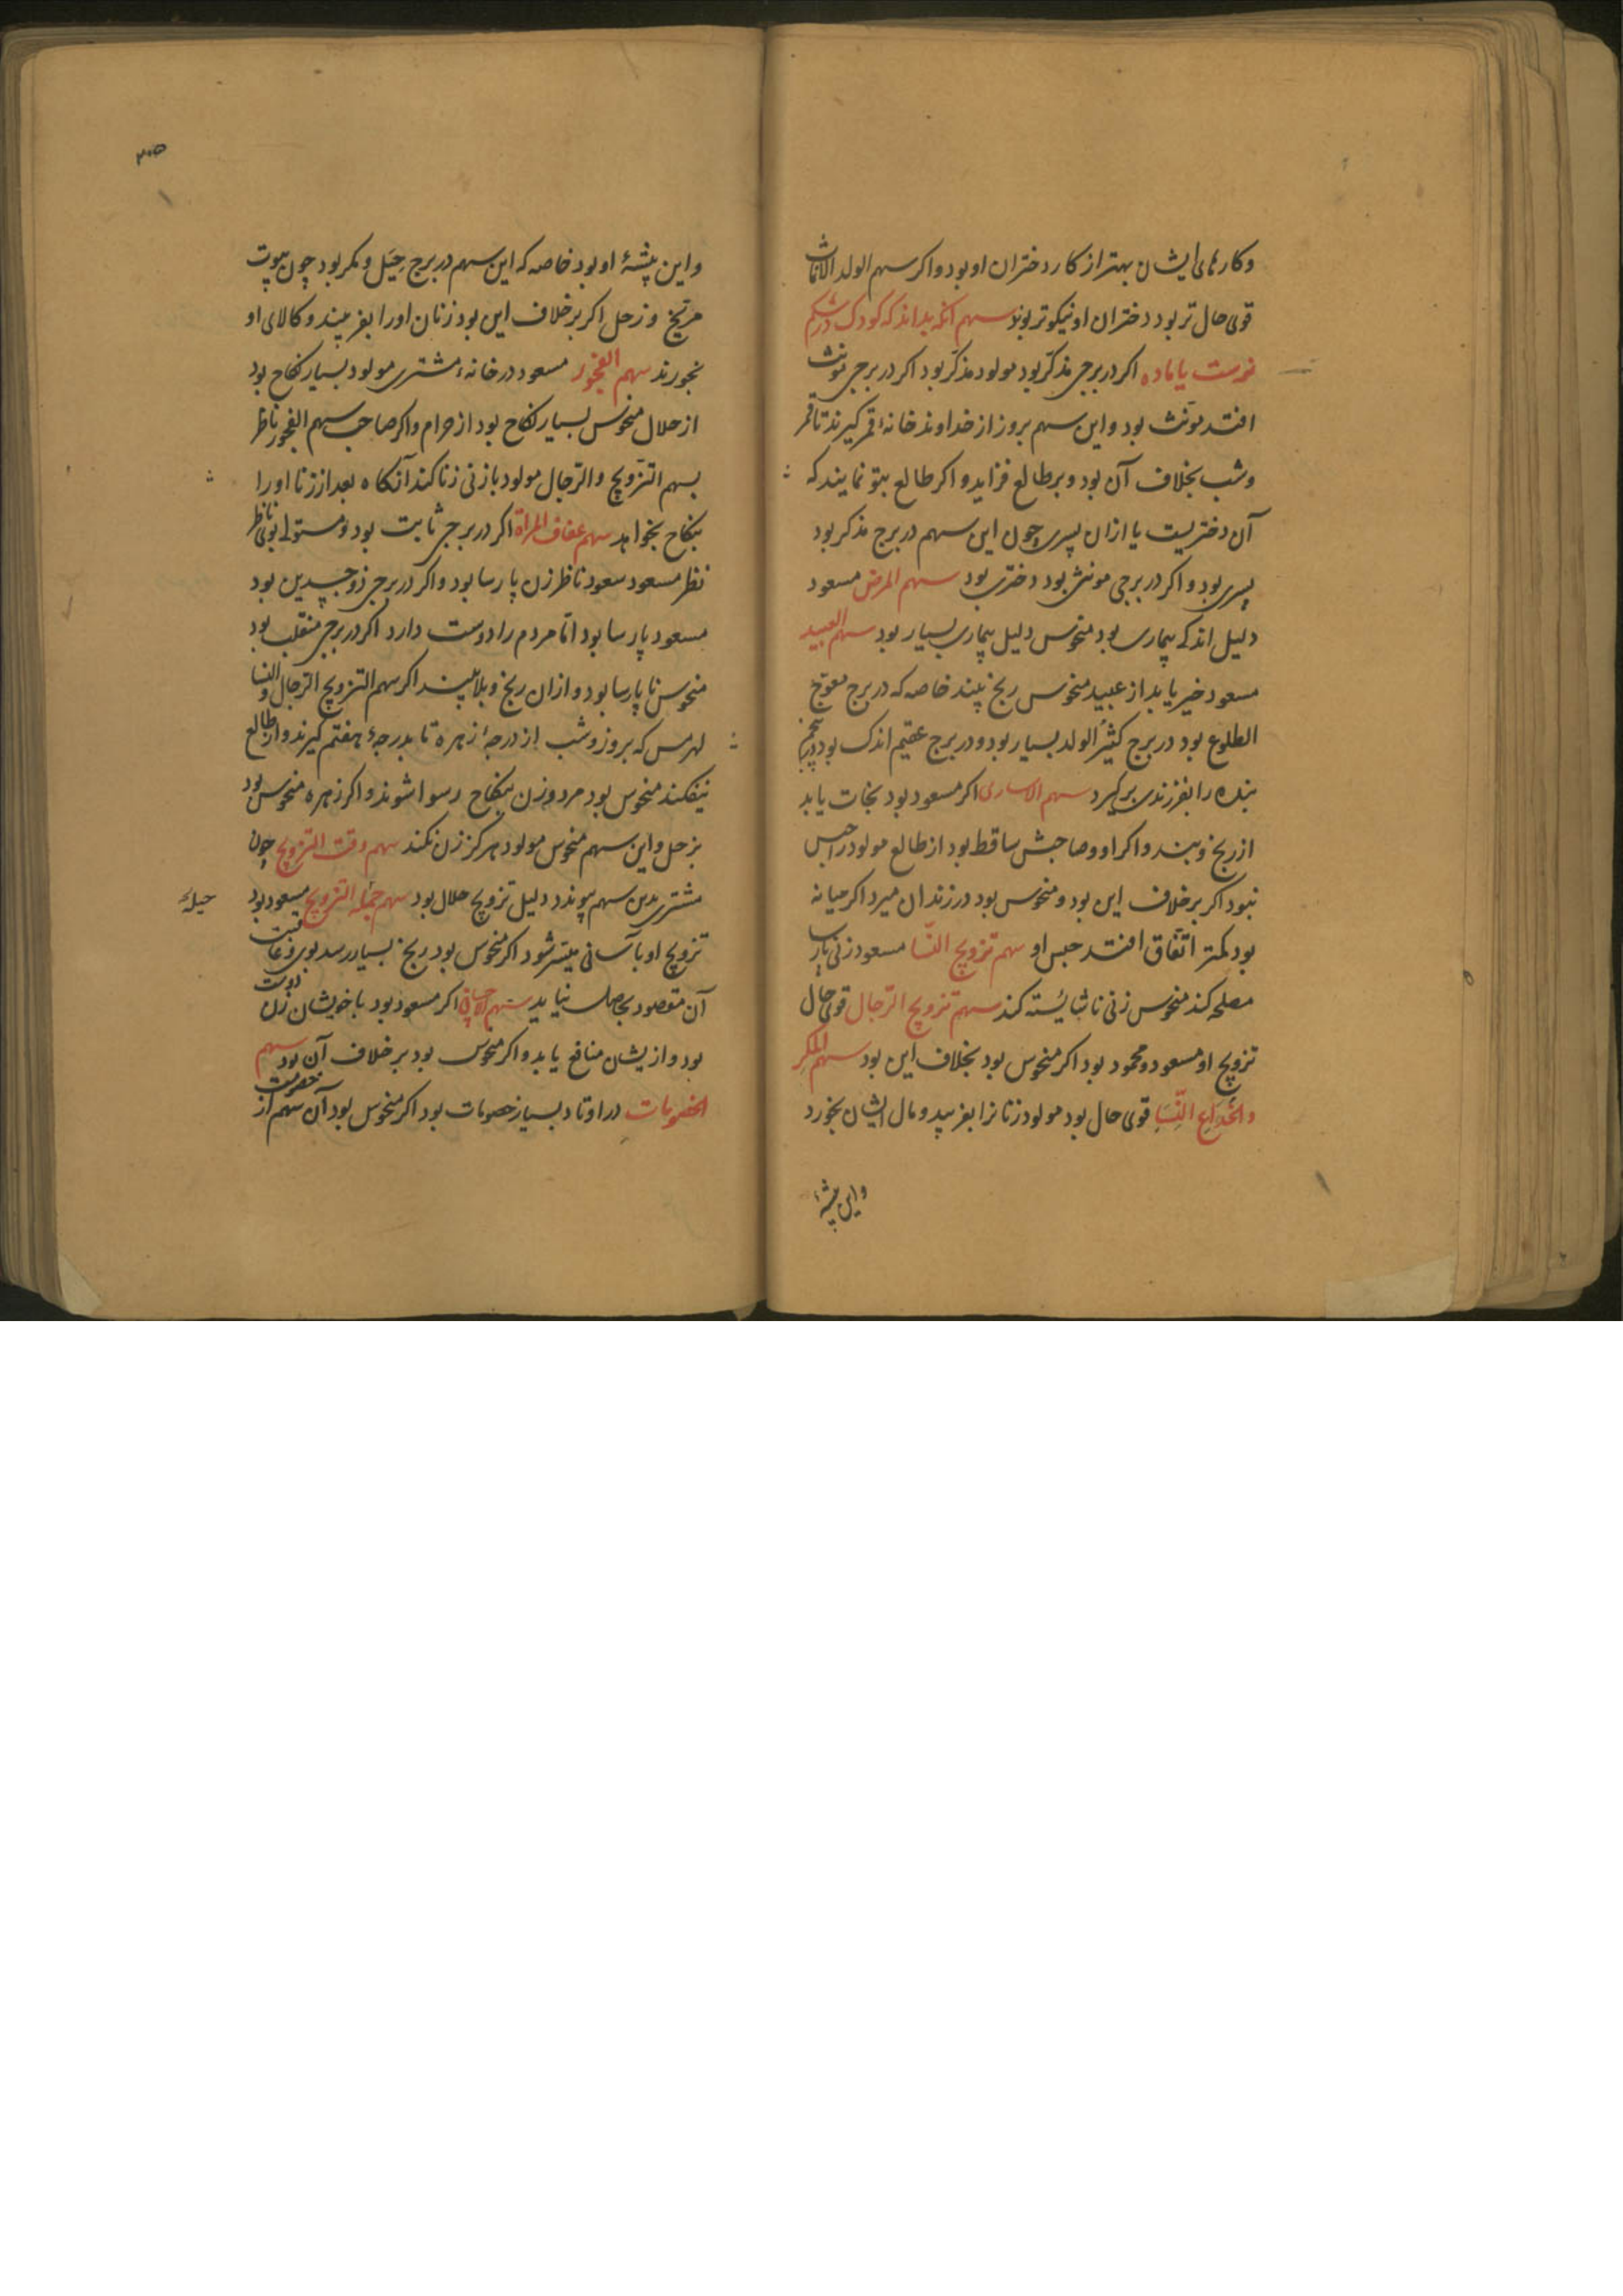 وکارهای ایشان بهتر از کار دختران او بود و اکر سهم الولد الاناث
قوی حال تر بود دختران او نیکوتر بوند سهم آنکه بداند که کودک در شکم
نرست یا ماده اکر در برجی مذکّر بود مولود مذکّر بود اکر در برجی مونث
افتد مونث بود و این سهم بروز از خداوند خانهٔ قمر کیرند تا قمر
وشب بخلاف آن بود و بر طالع فزاید و اکر طالع بتو نمایند که
آن دختریست یا ازان پسری چون این سهم در برج مذکر بود
پسری بود و اکر در برجی مونث بود دختری بود سهم المرض مسعود
دلیل اندکی بیماری بود منحوس دلیل بیماری بسیار بود سهم العبید
مسعود خیر یابد از عبید منحوس رنج بیند خاصه که در برج معوّج
الطلوع بود در برج کثیرُ الولد بسیار بود و در برج عقیم اندک بود
بنده را بفرزندی برکیرد سهم الاساری اکر مسعود بود نجات یابد
از رنج و بند و اکر او و صاحبش ساقط بود از طالع مولود را حبس
نبود اکر برخلاف این بود و منحوس بود در زندان میرد اکر میانه
بود کمتر اتّفاق افتد حبس او سهم تزویج النّسا مسعود زنی پارسا
مصلحه کند منحوس زنی ناشایسته کند سهم تزویج الرّجال قوی حال
تزویج او مسعود و محمود بود اکر منحوس بود بخلاف این بود سهم المکرِ
والخِداعِ النِّسَاِ قوی حال بود مولود زنانرا بفریبد و مال ایشان بخورد
واین پیشهٔ
۳۰۵
و این پیشهٔ او بود خاصه که این سهم در برج حِیَل و مکر بود چون بیوت
مریخ و زحل اکر برخلاف این بود زنان اورا بفریبند و کالای او
بخورند سهم الفجور مسعود در خانهٔ مشتری مولود بسیار نکاح بود
از حلال منحوس بسیار نکاح بود از حرام و اکر صاحب سهم الفجور ناظر
بسهم التّزویج والرّجال مولود بازنی زنا کند آنکاه بعد از زنا اورا
بنکاح بخواهد سهم عفاف المراة اکر در برجی ثابت بود و مستولی بوی ناظر
نظر مسعود سعود ناظر زن پارسا بود و اکر در برجی ذوجسدین بود
مسعود پارسا بود امّا مردم را دوست دارد اکر در برجی منقلب بود
منحوس ناپارسا بود و ازان رنج و بلا بیند اکر سهم التزویج الرّجال والنسا
لهرمس که بروز و شب از درجهٔ زهره تا بدرجهٔ هفتم کیرند و از طالع
بیفکند منحوس بود مرد و زن بنکاح رسوا شوند و اکر زهره منحوس بود
بزحل و این سهم منحوس مولود هرکز زن نکند سهم وقت التزویج چون
مشتری بدین سهم پیوندد دلیل تزویج حلال بود سهم حیلة التزویج مسعود بود
حیلهٔ
تزویج او بآسانی میسّر شود اکر منحوس بود رنج بسیار رسد بوی و عاقبت
آن مقصود بحاصل نیاید سهم اکر مسعود بود باخویشان زن دوست
بود و ازیشان منافع یابد و اکر منحوس بود برخلاف آن بود سهم
الخصومات در اوتاد بسیار خصومات بود اکر منحوس بود آن سهم از خصومت